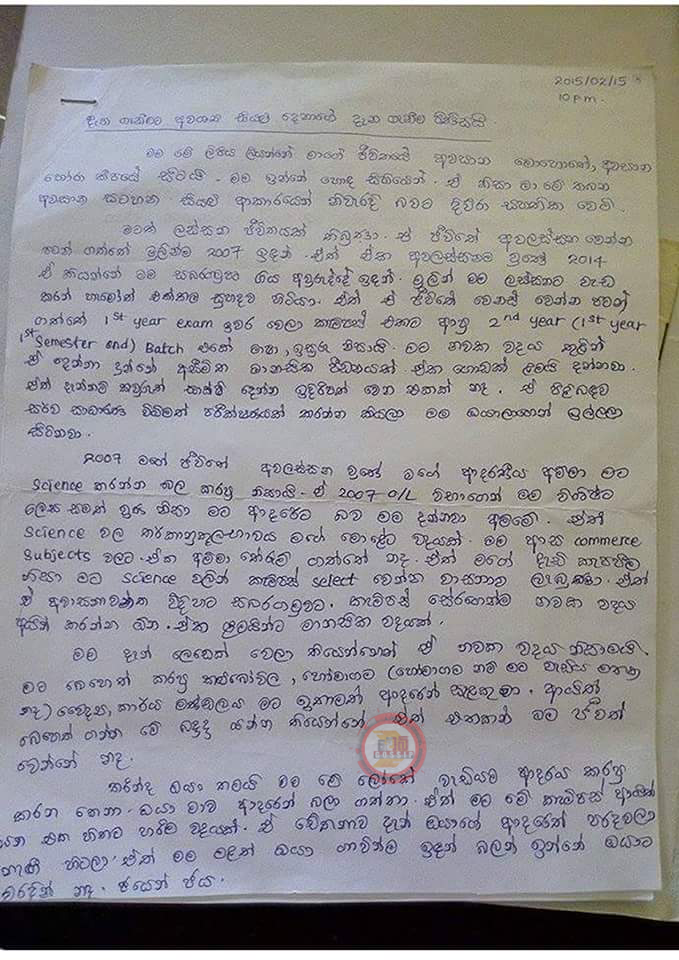 2015/02/15
10 p.m.
දැන ගැනීමට අවශ්‍ය සියළු දෙනාගේ දැන ගැනීම පිණිසයි.
මම මේ ලිපිය ලියන්නේ මාගේ ජීවිතයේ අවසාන මොහොතේ, අවසාන
හෝරා කීපයේ සිටයි. මම ඉන්නේ හොඳ සිහියෙන්. ඒ නිසා මා මේ තබන
අවසාන සටහන සියළු ආකාරයෙන් නිවැරදි බවට දිවුරා සහතික වෙමි.
මටත් ලස්සන ජීවිතයක් තිබුණා. ඒ ජීවිතේ අවලස්සන වෙන්න
පටන් ගත්තේ මුලින්ම 2007 ඉඳන්. ඒත් ඒක අවලස්සනම වුනේ 2014
ඒ කියන්නේ මම සබරගමුව ගිය අවුරුද්දේ ඉඳන්. මුලින් මම ලස්සනට වැඩ
කරන් හැමෝත් එක්කල සුහදව හිටියා. ඒත් ඒ ජීවිතේ වෙනස් වෙන්න පටන්
ගත්තේ 1st year exam ඉවර වෙලා කැම්පස් එකට ආපු 2nd year (1st year
1st Semester end) Batch එකේ නිසයි. මට නවක වදය තුලින්
ඒ දෙන්නා දුන්නේ අසීමිත මානසික පීඩනයක් ඒක ගොඩක් ළමයි දන්නවා.
ඒත් දැන්නම් කවුරුත් සාක්ෂි දෙන්න ඉදිරිපත් වෙන එකක් නෑ. ඒ පිළිබඳව
සර්ව සාධාරණ විධිමත් පරීක්ෂණයක් කරන්න කියලා මම ඔයාලාගෙන් ඉල්ලා
සිටිනවා.
2007 මගේ ජීවිතේ අවලස්සන වුනේ මගේ ආදරණීය අම්මා මට
Science කරන්න බල කරපු නිසායි. ඒ 2007 O/L විභාගෙන් මම විශිෂ්ට
ලෙස සමත් වුණ නිසා මට ආදරේට බව මම දන්නවා අම්මේ. ඒත්
Science වල තර්කානුකූලභාවය මගේ මොළේට වදයක්. මම ආස commerce
Subjects වලට. ඒක අම්මා තේරුම් ගත්තේ නැද. ඒත් මගේ දැඩි කැපවීම
නිසා මට Science වලින් කැම්පස් select වෙන්න වාසනාව ලැබුණා. ඒත්
ඒ අවාසනාවන්ත විදිහට සබරගමුවට. කැම්පස් සේරගෙන්ම නවක වදය
අයින් කරන්න ඕන. ඒක ළමයින්ට මානසික වදයක්.
මම දැන් ලෙඩෙක් වෙලා තියෙන්නෙත් ඒ නවක වදය නිසාමයි.
මට බෙහෙත් කරපු හෝමාගම (හෝමාගම නම් මට වැඩිය මතක
නෑ) වෛද්‍ය, කාර්ය මණ්ඩලය මට ඉතාමත් ආදරෙන් සැළකුවා. ආයිත්
බෙහෙත් ගන්න මේ බදාදා යන්න තියෙන්නේ. ඒත් එතකන් මම ජීවත්
වෙන්නේ නැද.
ඔයා තමයි මම මේ ලෝකේ වැඩියම ආදරය කරපු
කරන කෙනා. ඔයා මාව ආදරෙන් බලා ගත්තා. ඒත් මට මේ කැම්පස් ආයිත්
යන එක හිතට හරිම වදයක්. ඒ වේදනාව දැන් ඔයාගේ ආදරෙත් පරදවලා
නැගී හිටලා. ඒත් මම මළත් ඔයා ගාවින්ම ඉඳන් බලන් ඉන්නේ ඔයාට
වරදින් නෑ. ජයෙන් ජය.